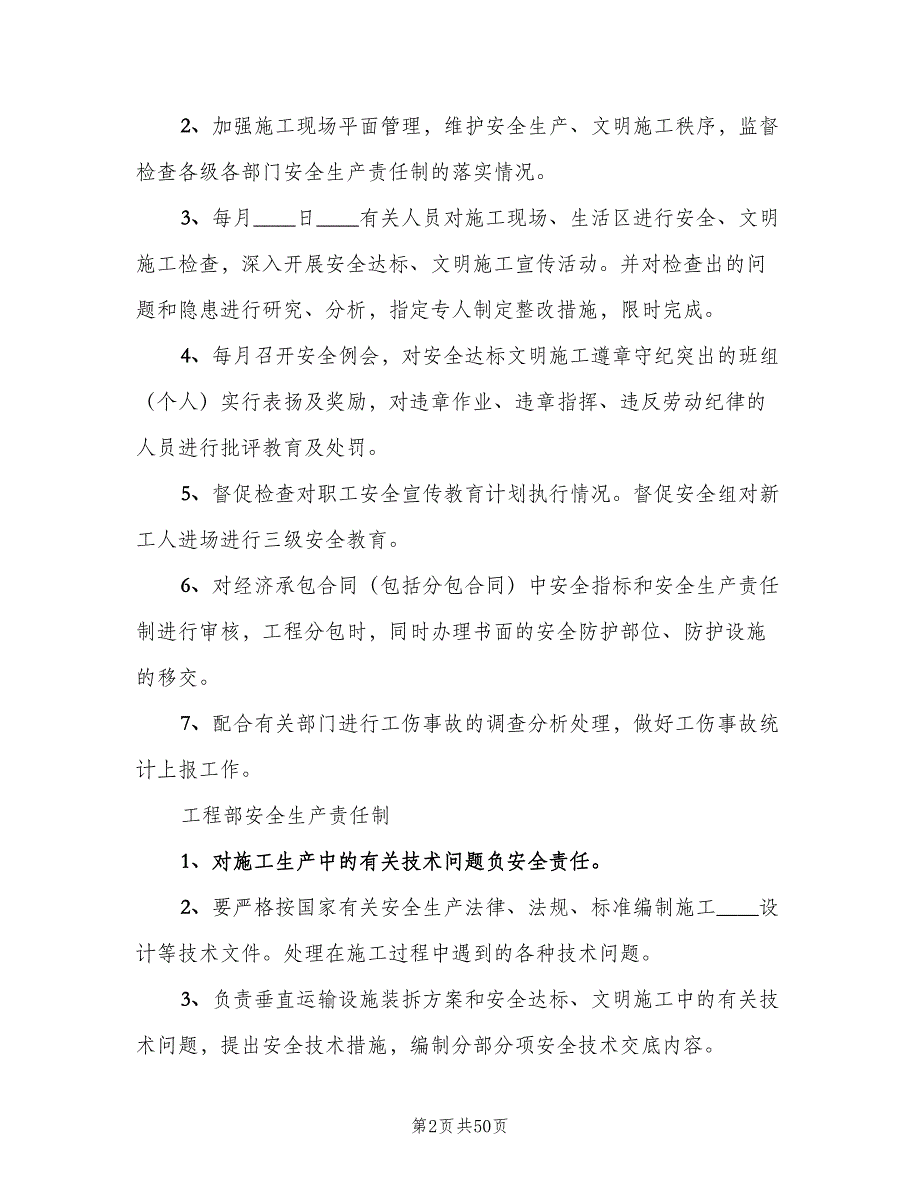 2、加强施工现场平面管理，维护安全生产、文明施工秩序，监督
检查各级各部门安全生产责任制的落实情况。
3、每月____日____有关人员对施工现场、生活区进行安全、文明
施工检查，深入开展安全达标、文明施工宣传活动。并对检查出的问
题和隐患进行研究、分析，指定专人制定整改措施，限时完成。
4、每月召开安全例会，对安全达标文明施工遵章守纪突出的班组
（个人）实行表扬及奖励，对违章作业、违章指挥、违反劳动纪律的
人员进行批评教育及处罚。
5、督促检查对职工安全宣传教育计划执行情况。督促安全组对新
工人进场进行三级安全教育。
6、对经济承包合同（包括分包合同）中安全指标和安全生产责任
制进行审核，工程分包时，同时办理书面的安全防护部位、防护设施
的移交。
7、配合有关部门进行工伤事故的调查分析处理，做好工伤事故统
计上报工作。
工程部安全生产责任制
1、对施工生产中的有关技术问题负安全责任。
2、要严格按国家有关安全生产法律、法规、标准编制施工____设
计等技术文件。处理在施工过程中遇到的各种技术问题。
3、负责垂直运输设施装拆方案和安全达标、文明施工中的有关技
术问题，提出安全技术措施，编制分部分项安全技术交底内容。
第2页共50页